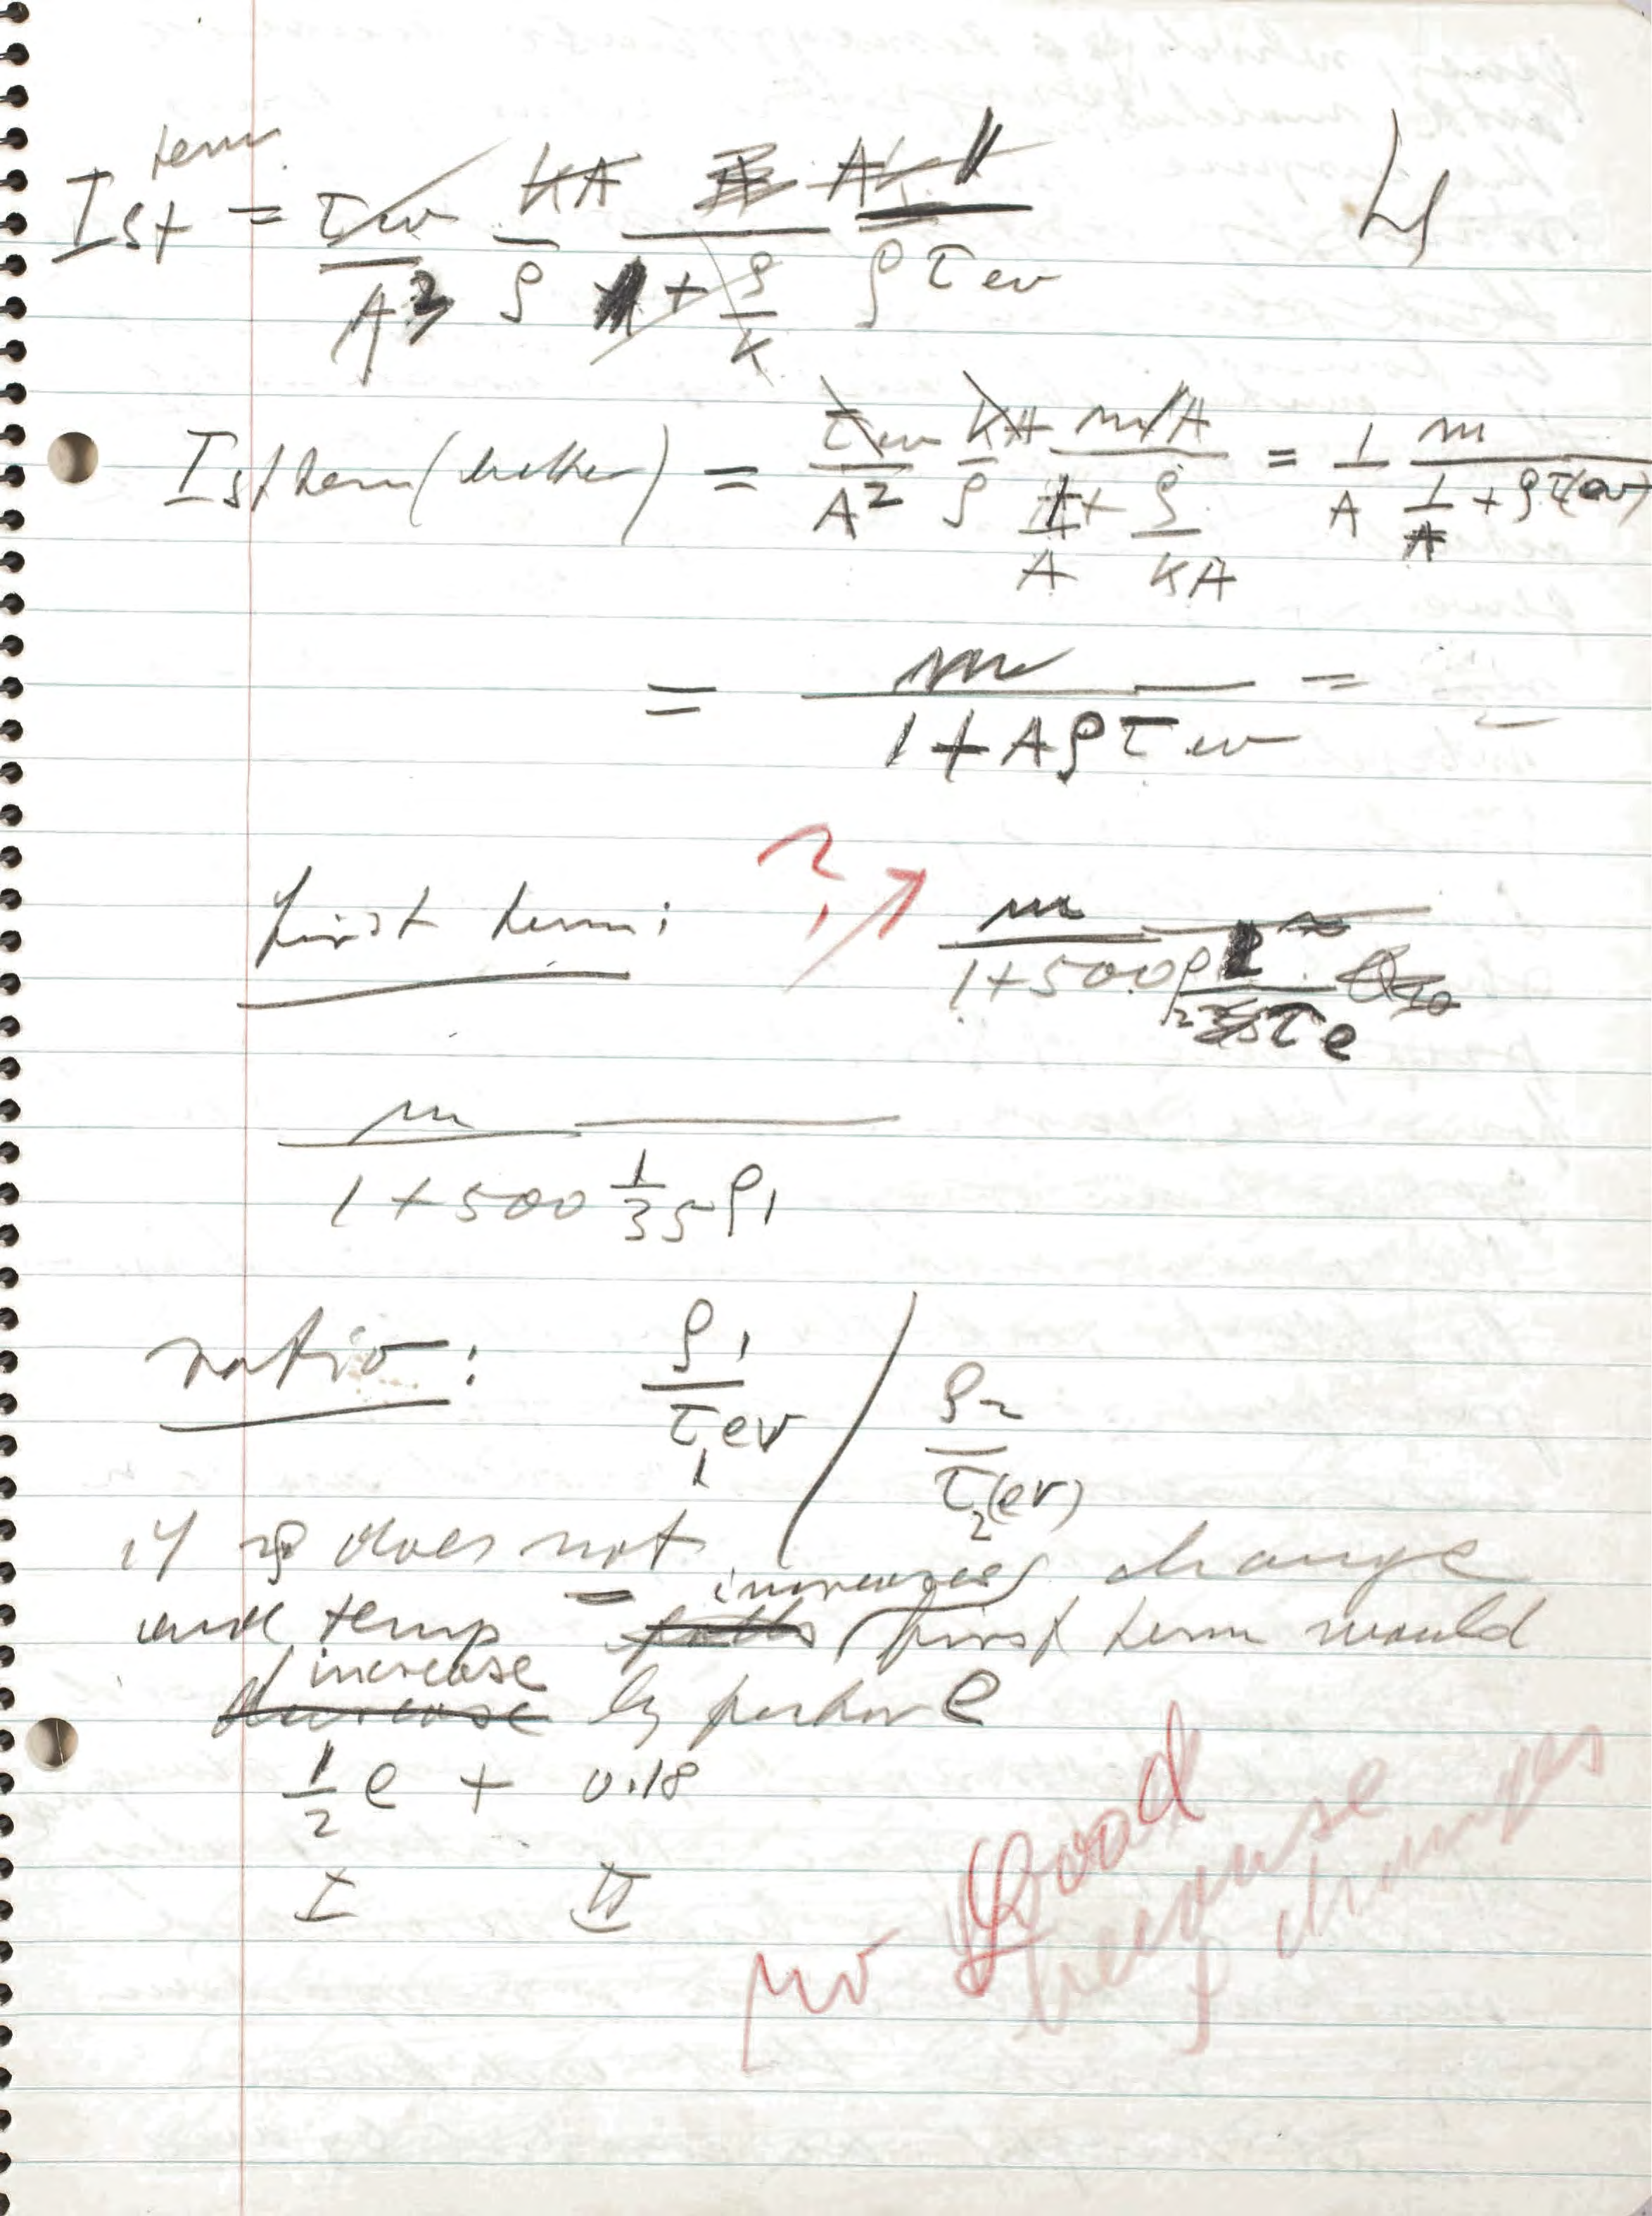 4
Ist term = τ ev / A² · KA / ρ · A / (1 + ρ/K) · 1 / ρ τ ev
Ist term (better) = τ ev / A² · KA / ρ · m/A / (1/A + ρ/KA) = 1/A · m / (1/A + ρ τ(ev))
= m / (1 + A ρ τ ev) =
first term: ? m / (1 + 500 ρ₂ 1 / τ e)
m / (1 + 500 1/35 ρ₁)
ratio: ρ₁ / τ₁ ev / ρ₂ / τ₂(ev)
if ρ does not change
and temp increases, first term would
increase
decrease by factor e
1/2 e + 0.18
I II
no good
because
ρ changes